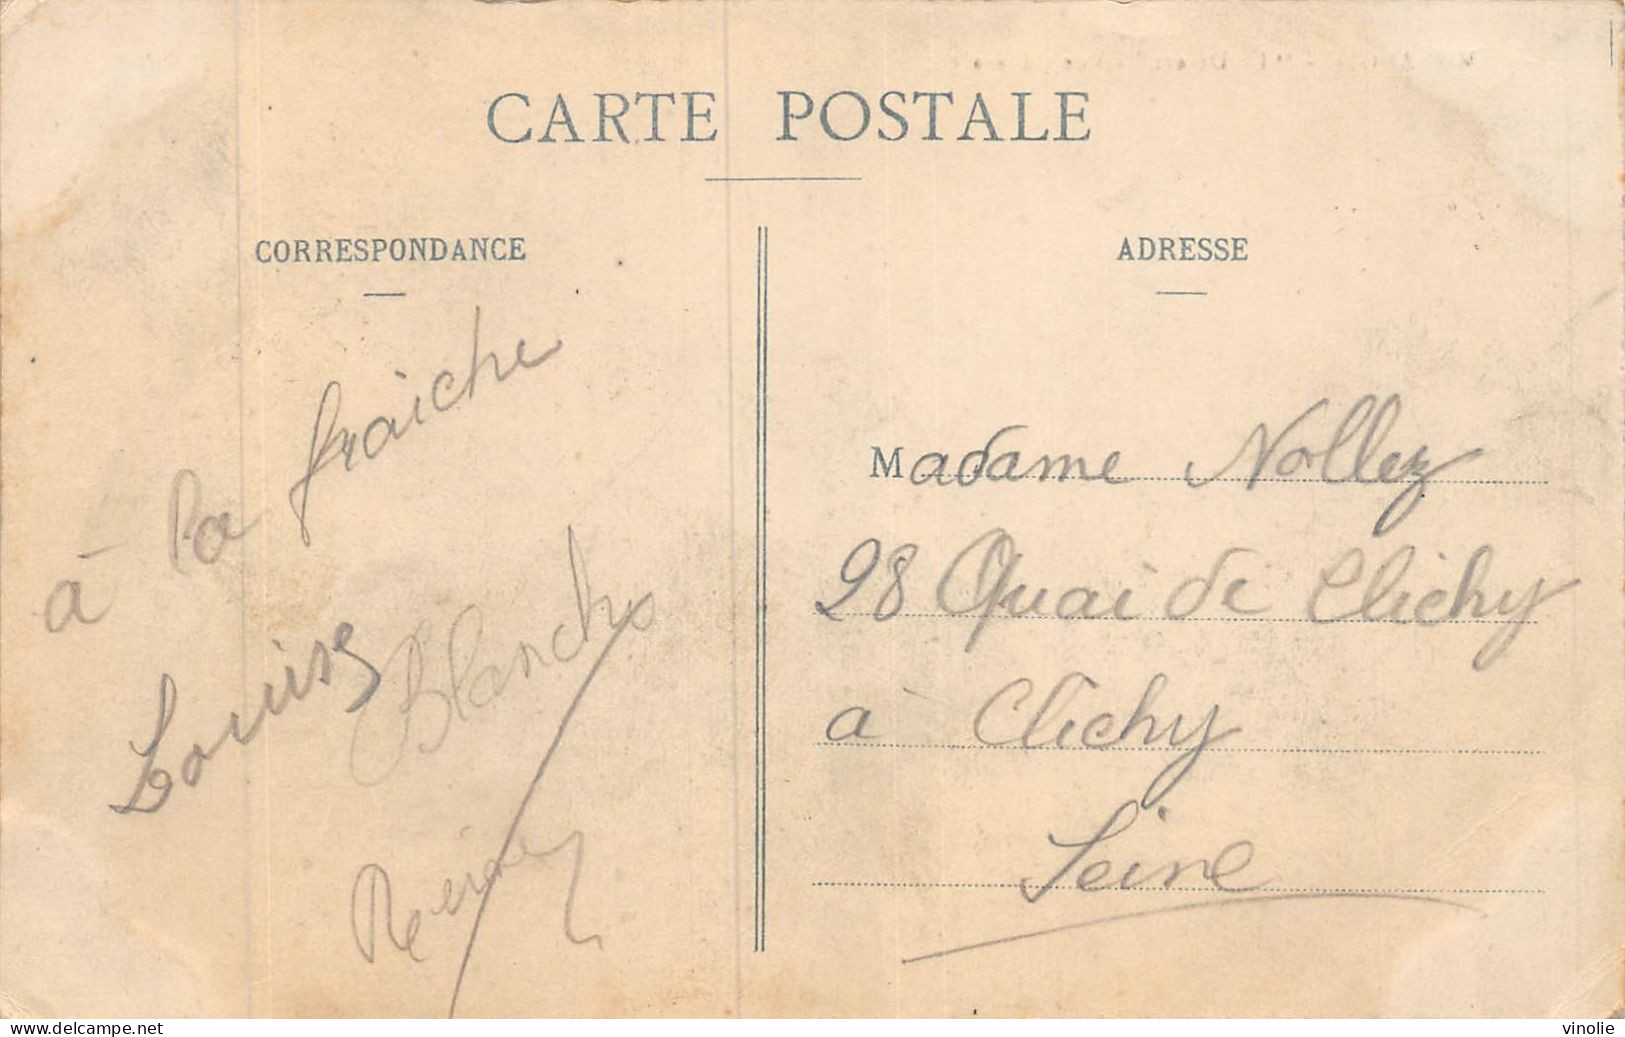 CARTE POSTALE
CORRESPONDANCE
à la fraiche
Louise
Blanche
Reine
ADRESSE
Madame Nollez
28 Quai de Clichy
a Clichy
Seine
www.delcampe.net
vinolie